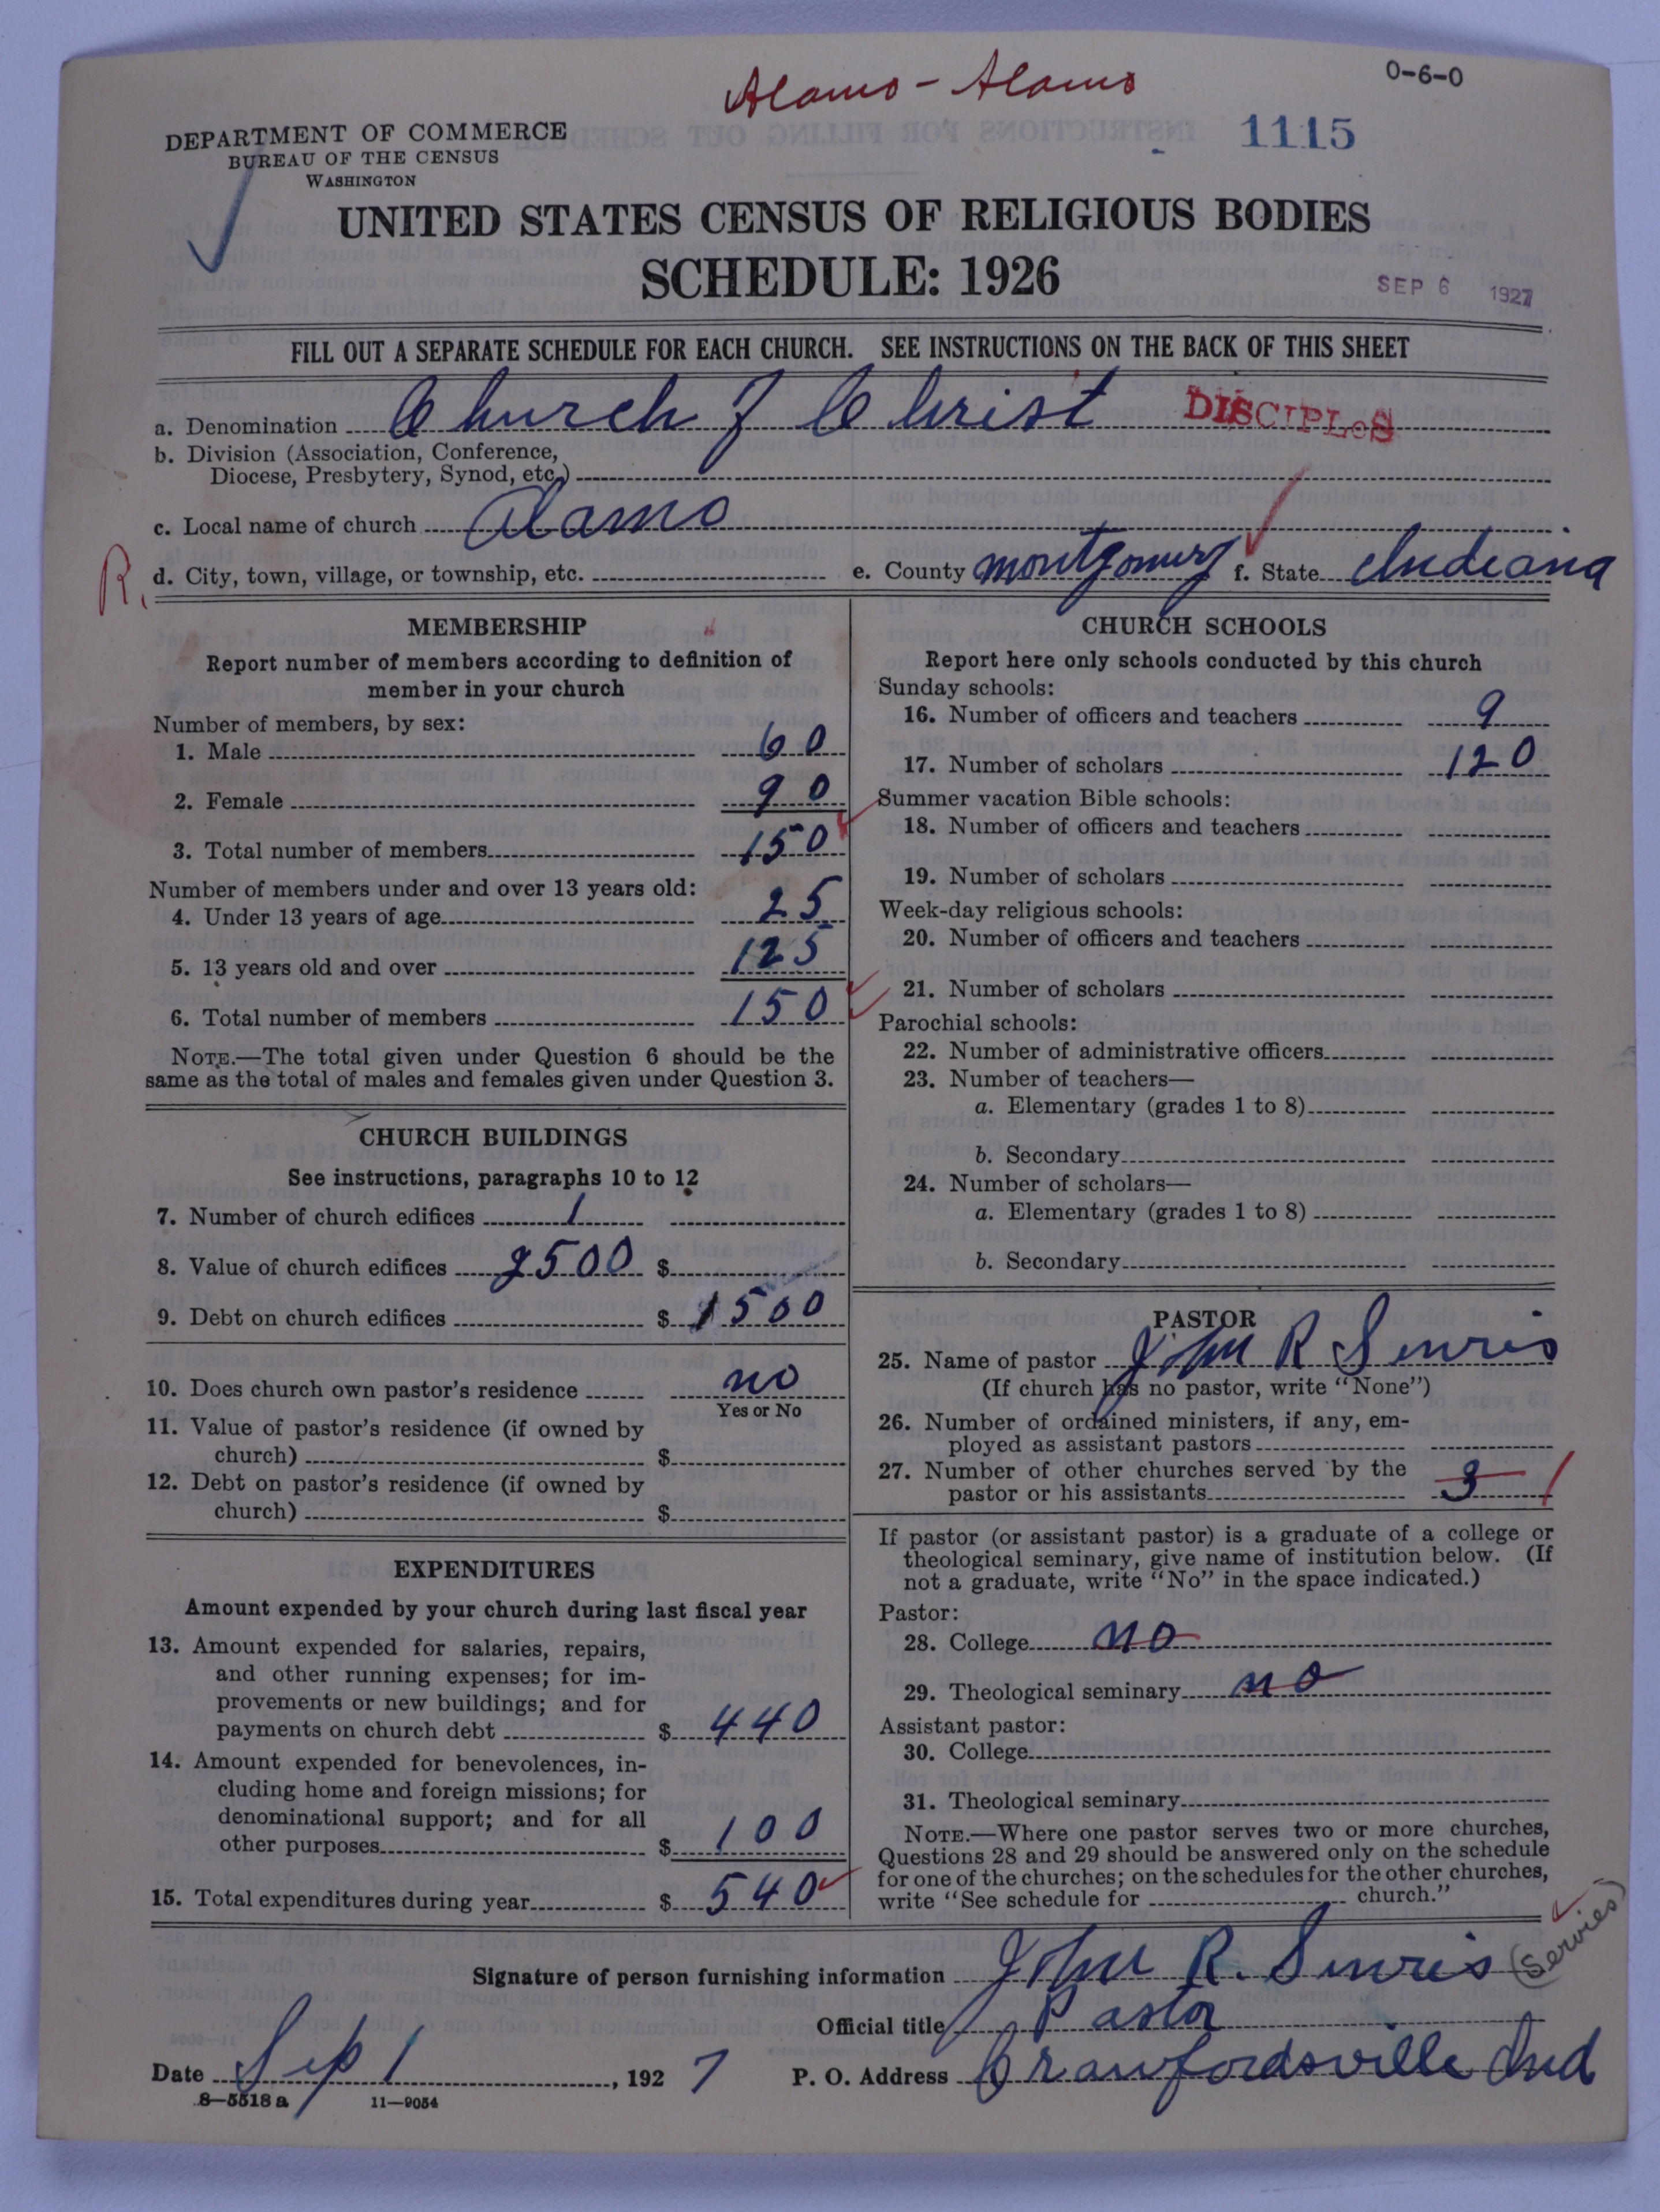 Alamo - Alamo
0-6-0
DEPARTMENT OF COMMERCE
BUREAU OF THE CENSUS
WASHINGTON
1115
UNITED STATES CENSUS OF RELIGIOUS BODIES
SCHEDULE: 1926
SEP 6 1927
FILL OUT A SEPARATE SCHEDULE FOR EACH CHURCH. SEE INSTRUCTIONS ON THE BACK OF THIS SHEET
a. Denomination Church of Christ DISCIPLES
b. Division (Association, Conference,
Diocese, Presbytery, Synod, etc.)
c. Local name of church Alamo
R. d. City, town, village, or township, etc. e. County Montgomery f. State Indiana
MEMBERSHIP
Report number of members according to definition of
member in your church
Number of members, by sex:
1. Male 60
2. Female 90
3. Total number of members 150
Number of members under and over 13 years old:
4. Under 13 years of age 25
5. 13 years old and over 125
6. Total number of members 150
NOTE.—The total given under Question 6 should be the
same as the total of males and females given under Question 3.
CHURCH BUILDINGS
See instructions, paragraphs 10 to 12
7. Number of church edifices 1
8. Value of church edifices 2500 $
9. Debt on church edifices $ 1500
10. Does church own pastor's residence no
Yes or No
11. Value of pastor's residence (if owned by
church) $
12. Debt on pastor's residence (if owned by
church) $
EXPENDITURES
Amount expended by your church during last fiscal year
13. Amount expended for salaries, repairs,
and other running expenses; for im-
provements or new buildings; and for
payments on church debt $ 440
14. Amount expended for benevolences, in-
cluding home and foreign missions; for
denominational support; and for all
other purposes $ 100
15. Total expenditures during year $ 540
CHURCH SCHOOLS
Report here only schools conducted by this church
Sunday schools:
16. Number of officers and teachers 9
17. Number of scholars 120
Summer vacation Bible schools:
18. Number of officers and teachers
19. Number of scholars
Week-day religious schools:
20. Number of officers and teachers
21. Number of scholars
Parochial schools:
22. Number of administrative officers
23. Number of teachers—
a. Elementary (grades 1 to 8)
b. Secondary
24. Number of scholars—
a. Elementary (grades 1 to 8)
b. Secondary
PASTOR
25. Name of pastor John R Servies
(If church has no pastor, write "None")
26. Number of ordained ministers, if any, em-
ployed as assistant pastors
27. Number of other churches served by the
pastor or his assistants 3 1
If pastor (or assistant pastor) is a graduate of a college or
theological seminary, give name of institution below. (If
not a graduate, write "No" in the space indicated.)
Pastor:
28. College no
29. Theological seminary no
Assistant pastor:
30. College
31. Theological seminary
NOTE.—Where one pastor serves two or more churches,
Questions 28 and 29 should be answered only on the schedule
for one of the churches; on the schedules for the other churches,
write "See schedule for church."
Signature of person furnishing information John R. Servies (Servies)
Official title Pastor
Date Sep 1, 1927 P. O. Address Crawfordsville Ind
8—5518 a 11—9054